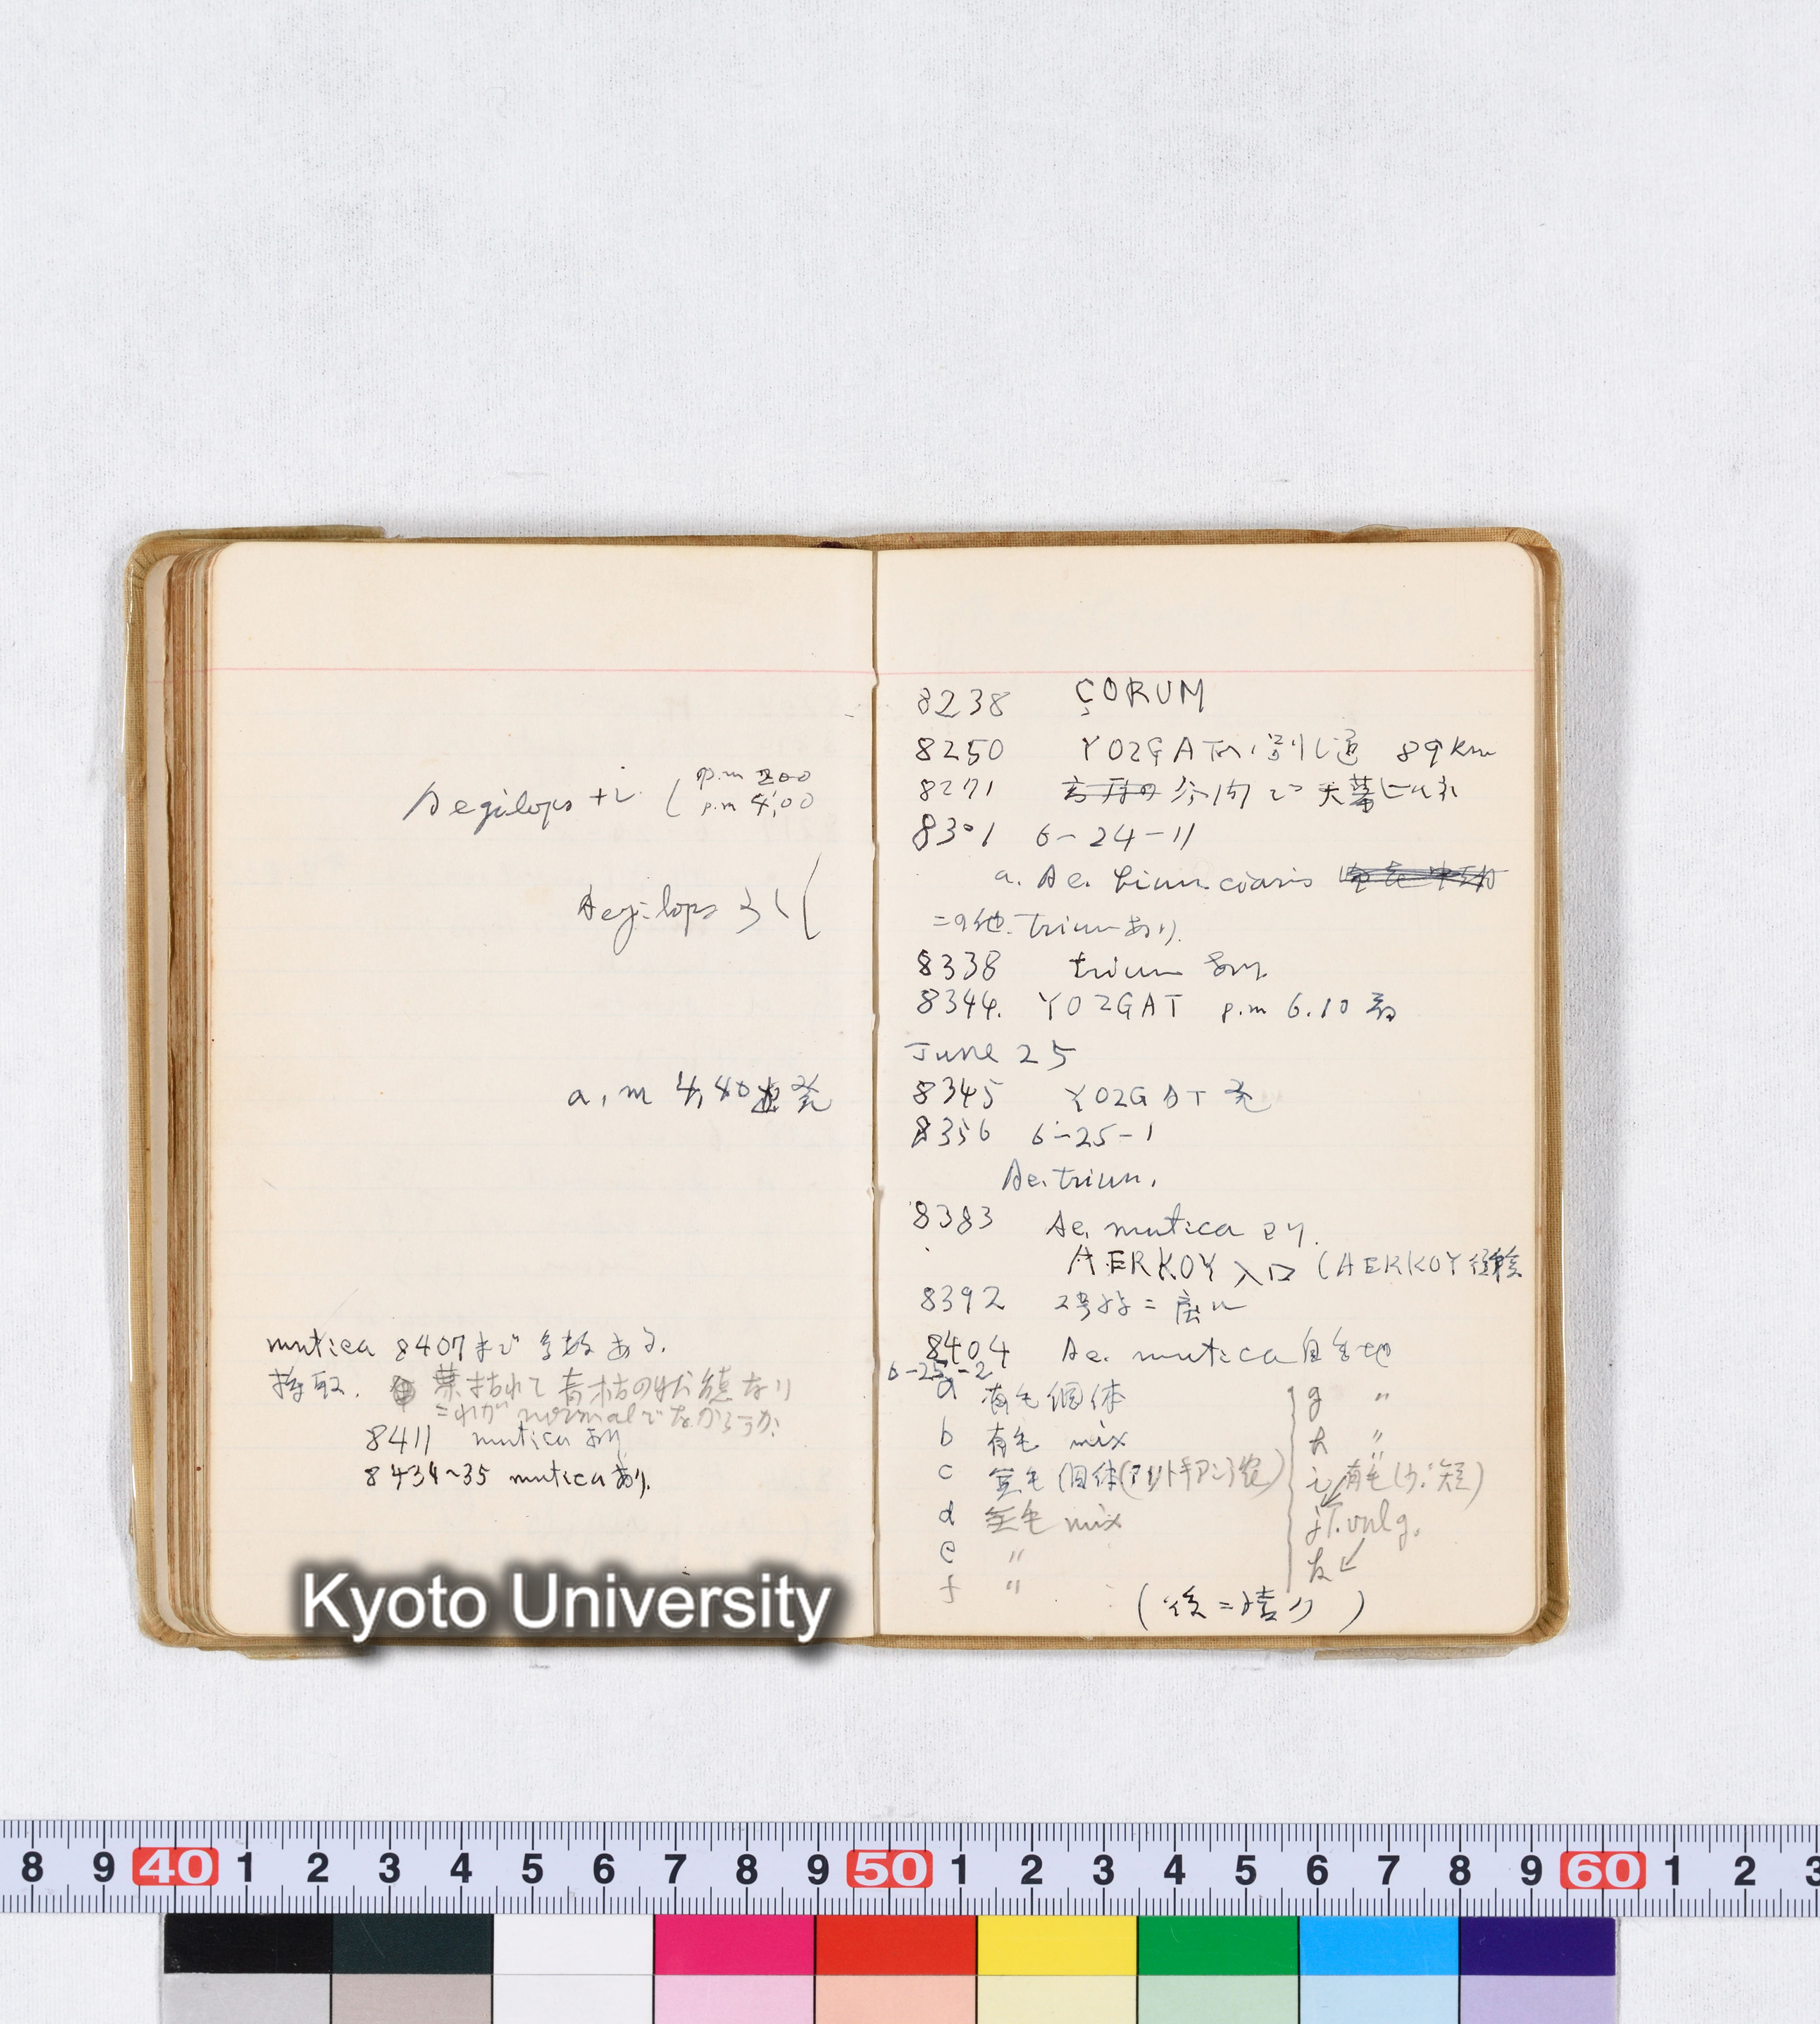 Aegilops ナシ (p.m 2.00
p.m 4.00
Aegilops
a.m 4,40 出発
mutica 8407まで多数ある.
採取. 葉枯れて青枯の状態なり
これが normalでなかろうか.
8411 mutica あり
8434~35 muticaあり.
8238 ÇORUM
8250 YOZGAT 89 km
8271 天幕
8301 6-24-11
a. Ae. biuncialis
=の他. triunあり.
8338 triun あり.
8344. YOZGAT p.m 6.10 着
June 25
8345 YOZGAT 発
8356 6-25-1
Ae. triun.
8383 Ae. mutica
AERKOY 入口 (AERKOY
8392
8404 Ae. mutica 自生地
6-25-2
a 有毛個体
b 有毛 mix
c 無毛 個体
d 無毛 mix
e 〃
f 〃
g 〃
h 〃
i 有毛
j T. vulg.
k
(後=
Kyoto University